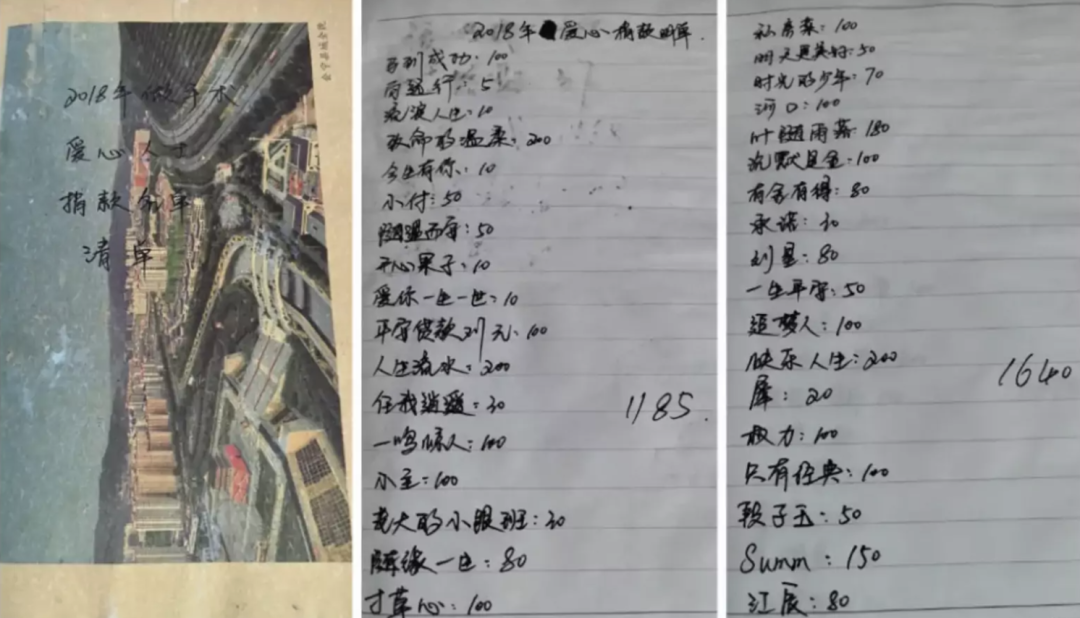 2018年做手术
爱心人士
捐款名单
清单
2018年爱心捐款明单
马到成功：100
百通行：5
浪漫人生：10
致命的温柔：200
今生有你：10
小付：50
随遇而安：50
开心果子：10
爱你一生一世：10
平安贷款刘元：100
人生流水：200
任我逍遥：30
一鸣惊人：100
小主：100
老大的小跟班：30
随缘一生：80
寸草心：100
1185
私房菜：100
明天更美好：50
时光的少年：70
河口：100
叶随雨落：180
沉默是金：100
有舍有得：80
承诺：30
刘星：80
一生平安：50
追梦人：100
快乐人生：200
犀：20
权力：100
只有经典：100
段子王：50
Summ：150
江辰：80
1640